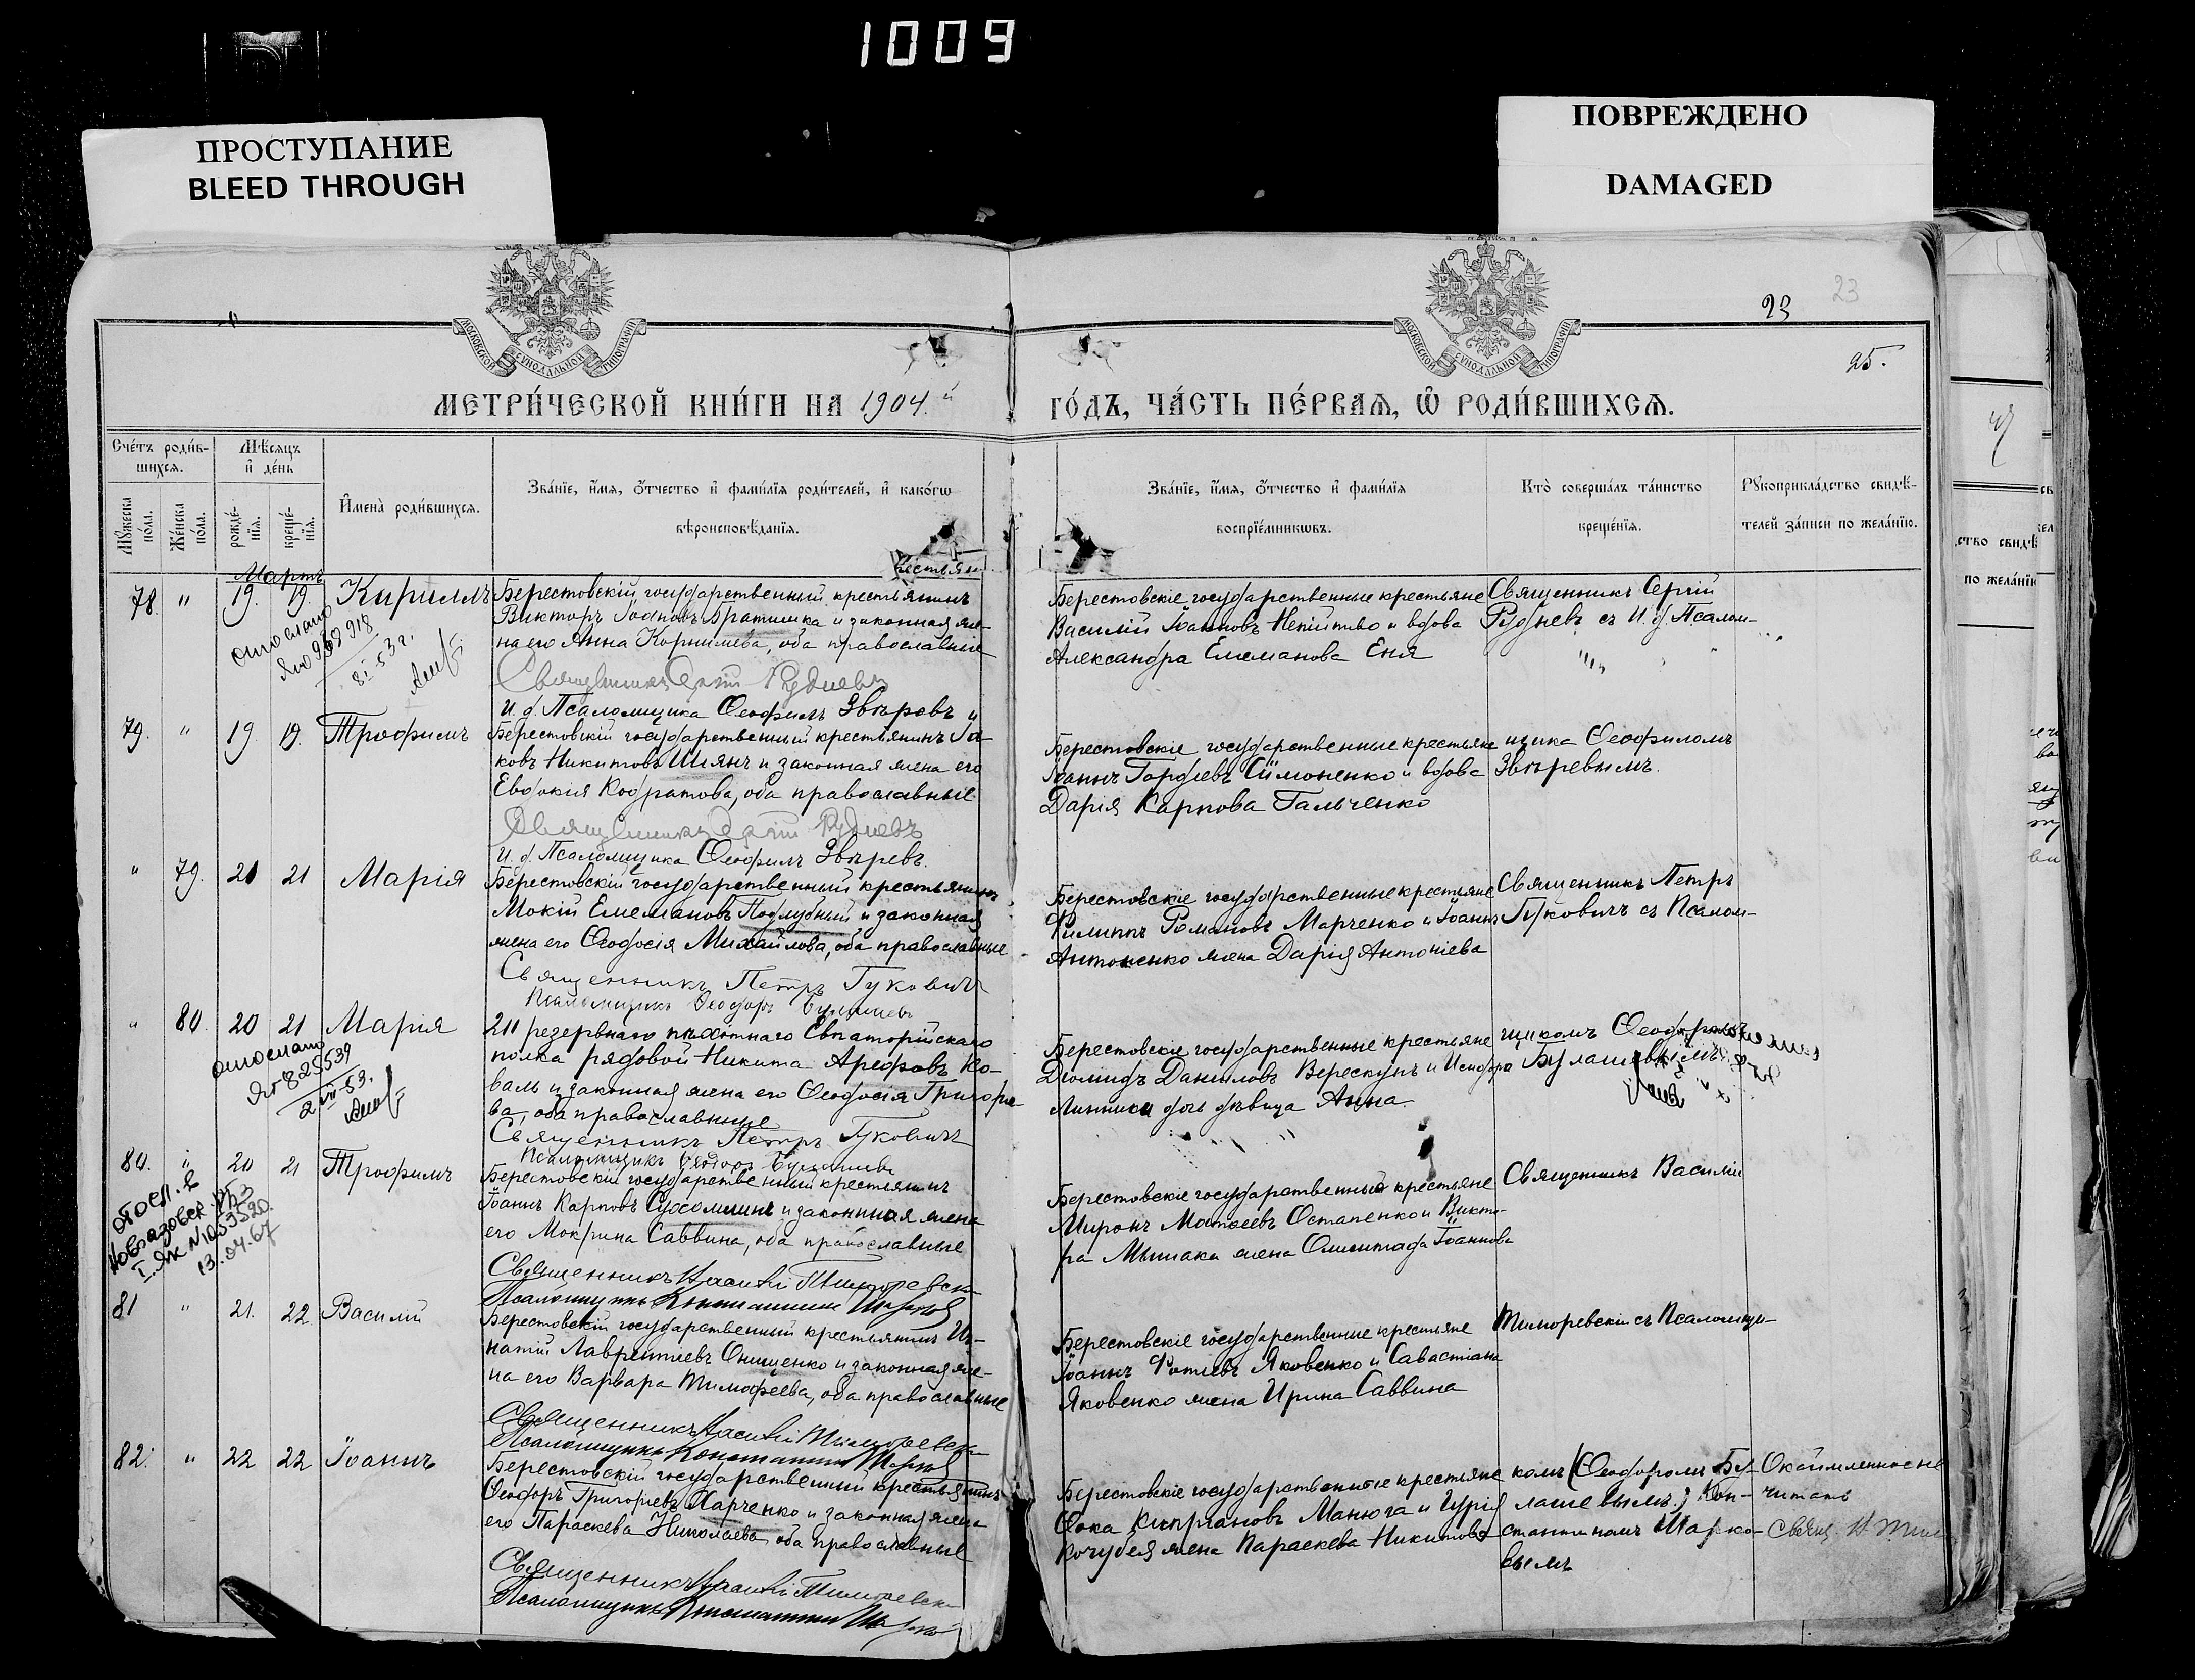 1009
ПРОСТУПАНИЕ
BLEED THROUGH
ПОВРЕЖДЕНО
DAMAGED
МОСКОВСКОЙ СѴНОДАЛЬНОЙ ТИПОГРАФІИ
МОСКОВСКОЙ СѴНОДАЛЬНОЙ ТИПОГРАФІИ
23
23
25.
МЕТРИ́ЧЕСКОЙ КНИ́ГИ НА 1904.й
ГО́ДЪ, ЧА́СТЬ ПЕ́РВАЯ, Ѡ РОДИ́ВШИХСЯ.
Сче́тъ роди́в-
шихся.
Му́жеска по́ла.
Же́нска по́ла.
Мѣ́сяцъ и де́нь
рожде́-
нїя.
креще́-
нїя.
И҆мена̀ роди́вшихся.
Зва́нїе, и҆́мя, ѻ҆́тчество и҆ фами́лїя роди́телей, и҆ како́гѡ
вѣроисповѣ́данїя.
Зва́нїе, и҆́мя, ѻ҆́тчество и҆ фами́лїя
воспрїе́мникѡвъ.
Кто̀ соверша́лъ та́инство
креще́нїя.
Рꙋкоприкла́дство свидѣ́-
телей за́писи по жела́нїю.
Мартъ
78. " 19. 19. Кириллъ
Берестовскій государственный крестьянинъ
Викторъ Іоанновъ Братишка и законная же-
на его Анна Корнилиева, оба православные
Священникъ Сергій Рудневъ
И. д. Псаломщика Ѳеофилъ Звѣревъ
Берестовскіе государственные крестьяне
Василій Іоанновъ Непійпиво и вдова
Александра Емельянова Еня
Священникъ Сергій
Рудневъ съ И. д. Псалом-
отослано
ЯЮ 969918
8/I-53 г.
79. " 19. 19. Трофимъ
Берестовскій государственный крестьянинъ Іа-
ковъ Никитовъ Шіянъ и законная жена его
Евдокія Кодратова, оба православные
Священникъ Сергій Рудневъ
И. д. Псаломщика Ѳеофилъ Звѣревъ.
Берестовскіе государственные крестьяне
Іоаннъ Гордіевъ Симоненко и вдова
Дарія Карпова Гальченко
щика Ѳеофиломъ
Звѣревымъ.
" 79. 21 21 Марія
Берестовскій государственный крестьянинъ
Мокій Емельяновъ Поддубный и законная
жена его Ѳеодосія Михайлова, оба православные
Священникъ Петръ Гуковичъ
Псаломщикъ Ѳеодоръ Булашевъ
Берестовскіе государственные крестьяне
Филиппъ Романовъ Марченко и Іоанна
Антоненко жена Дарія Антоніева
Священникъ Петръ
Гуковичъ съ Псалом-
" 80. 20 21 Марія
211 резервнаго пѣхотнаго Евпаторійскаго
полка рядовой Никита Арефовъ Ко-
валь и законная жена его Ѳеодосія Григорье
ва, оба православные
Священникъ Петръ Гуковичъ
Псаломщикъ Ѳеодоръ Булашевъ
Берестовскіе государственные крестьяне
Діомидъ Даниловъ Верескунъ и Исидора
Линника дочь дѣвица Анна.
щикомъ Ѳеодоромъ
Булашевымъ.
отослано
ЯЮ 825539
2/VII-53.
80. " 20 21 Трофимъ
Берестовскій государственный крестьянинъ
Іоаннъ Карповъ Сухомлинъ и законная жена
его Мокрина Саввина, оба православные
Священникъ Василій Тиморевскій
Псаломщикъ Константинъ Шарковъ
Берестовскіе государственные крестьяне
Миронъ Матѳеевъ Остапенко и Викто-
ра Мышака жена Олимпіада Іоаннова
Священникъ Василій
отосл. в
Новоазовск. РБ
I ЯК №1053520
13.04.67
81 " 21. 22. Василій
Берестовскій государственный крестьянинъ Иг-
натій Лаврентіевъ Онищенко и законная же-
на его Варвара Тимофеева, оба православные
Священникъ Василій Тиморевскій
Псаломщикъ Константинъ Шарковъ
Берестовскіе государственные крестьяне
Іоаннъ Фотіевъ Яковенко и Савастіана
Яковенко жена Ирина Саввина
Тиморевскій съ Псаломщи-
82. " 22 22 Іоаннъ
Берестовскій государственный крестьянинъ
Ѳеодоръ Григорьевъ Харченко и законная жена
его Параскева Николаева, оба православные
Священникъ Василій Тиморевскій
Псаломщикъ Константинъ Шарковъ
Берестовскіе государственные крестьяне
Ѳока Кипріановъ Манюга и Гурія
Кочубея жена Параскева Никитова
комъ (Ѳеодоромъ Бу-
лашевымъ.) Кон-
стантиномъ Шарко-
вымъ
Окаймленное не
читать
Свящ. В. Тим